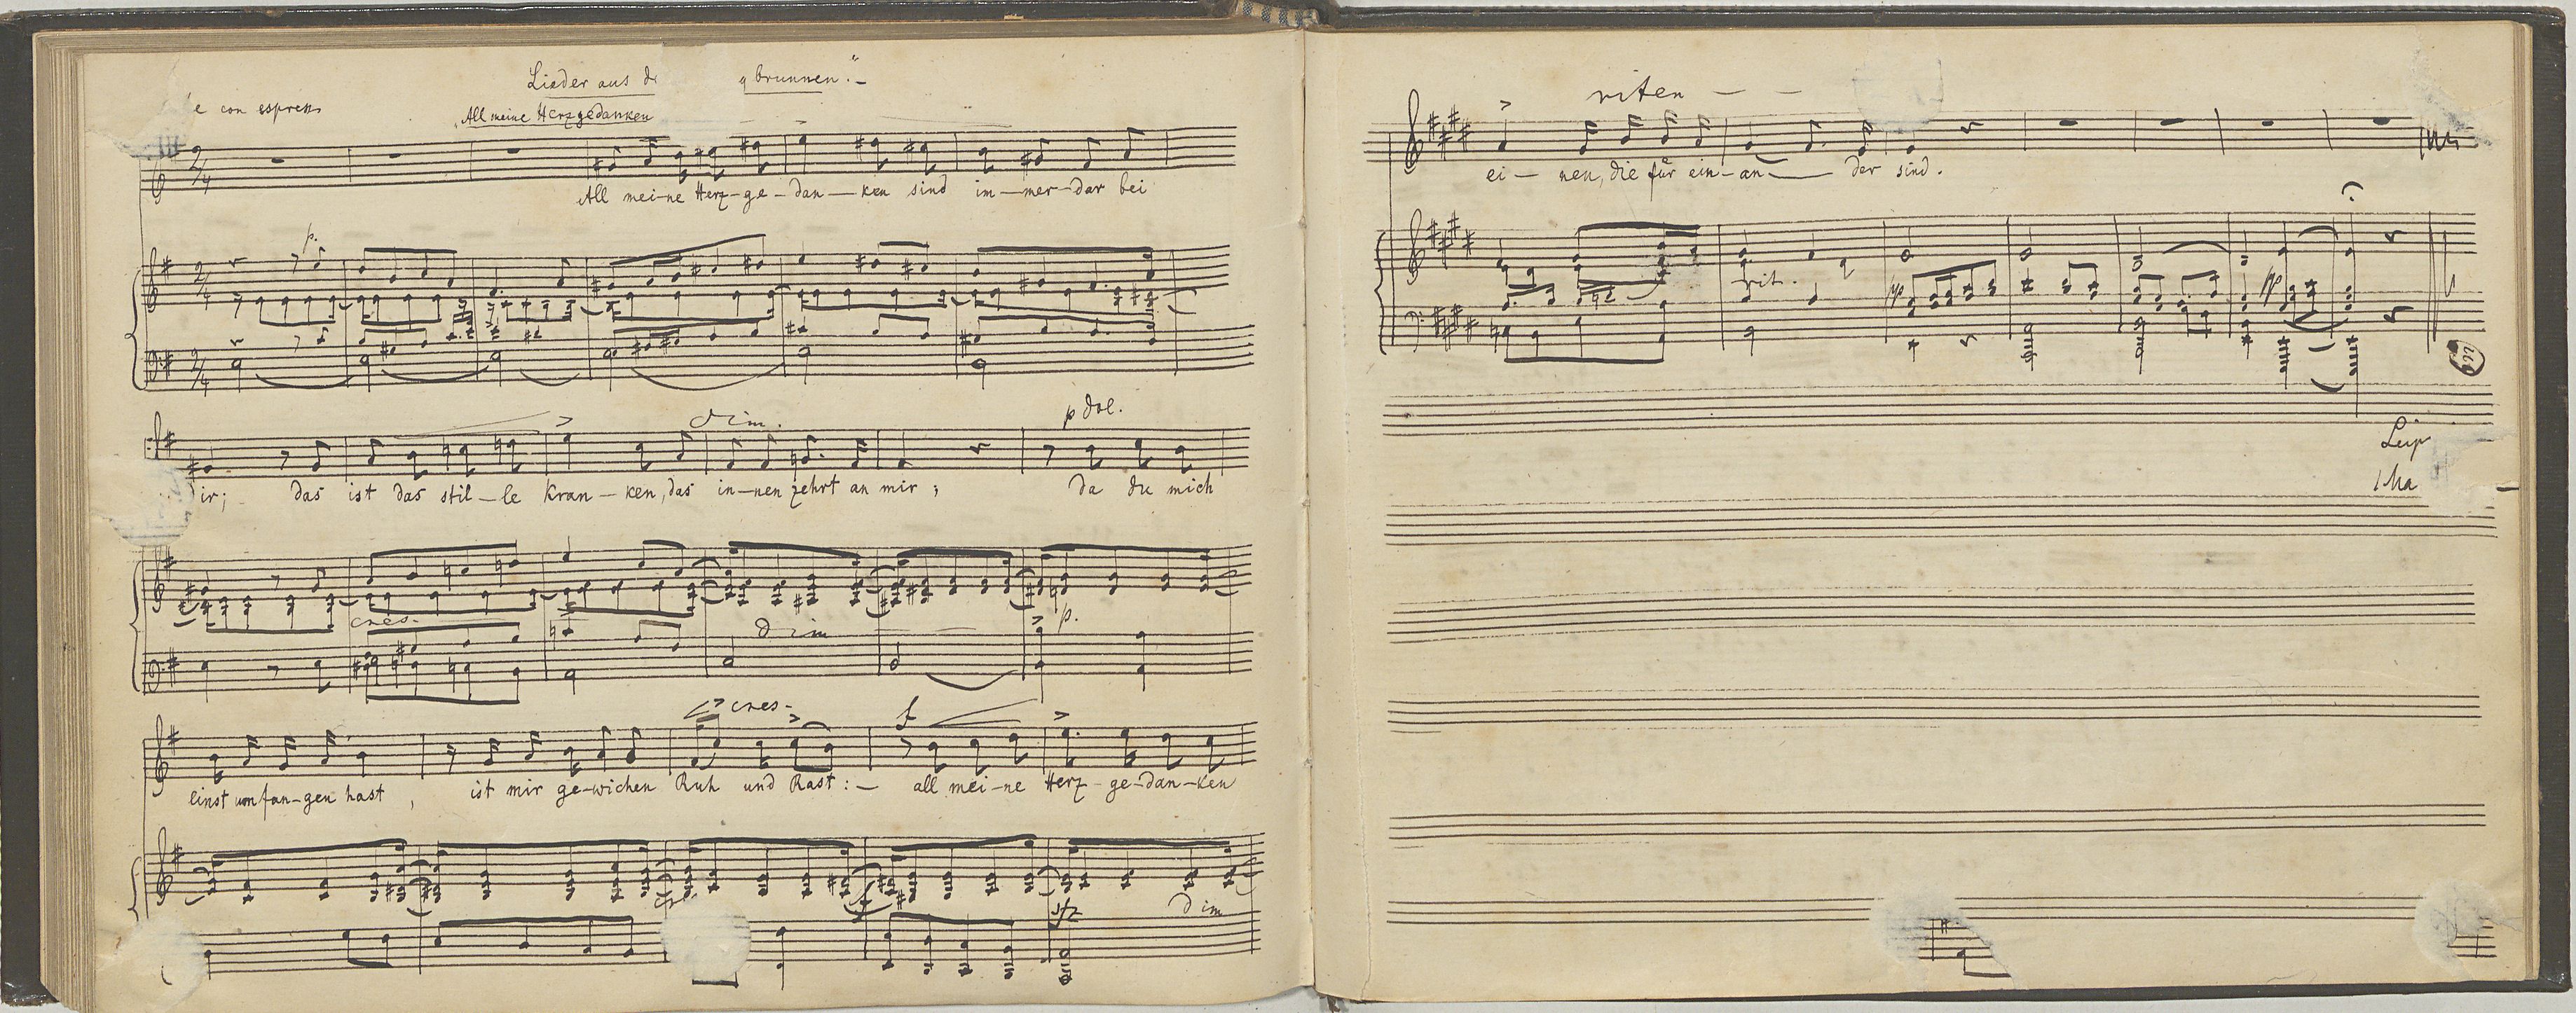 Lieder aus d brunnen."–
e con espress
All meine Herzgedanken
All mei–ne Herz–ge–dan–ken sind im–mer–dar bei
p.
dim.
p dol.
dir; das ist das stil–le Kran–ken, das in–nen zehrt an mir; da du mich
cres.
dim
p.
cres–
f
einst umfan–gen hast, ist mir ge–wichen Ruh und Rast:– all mei–ne Herz–ge–dan–ken
sfz
dim
riten – –
ei–nen, die für ein–an–der sind.
rit.
pp
pp
Leip
1 Ma